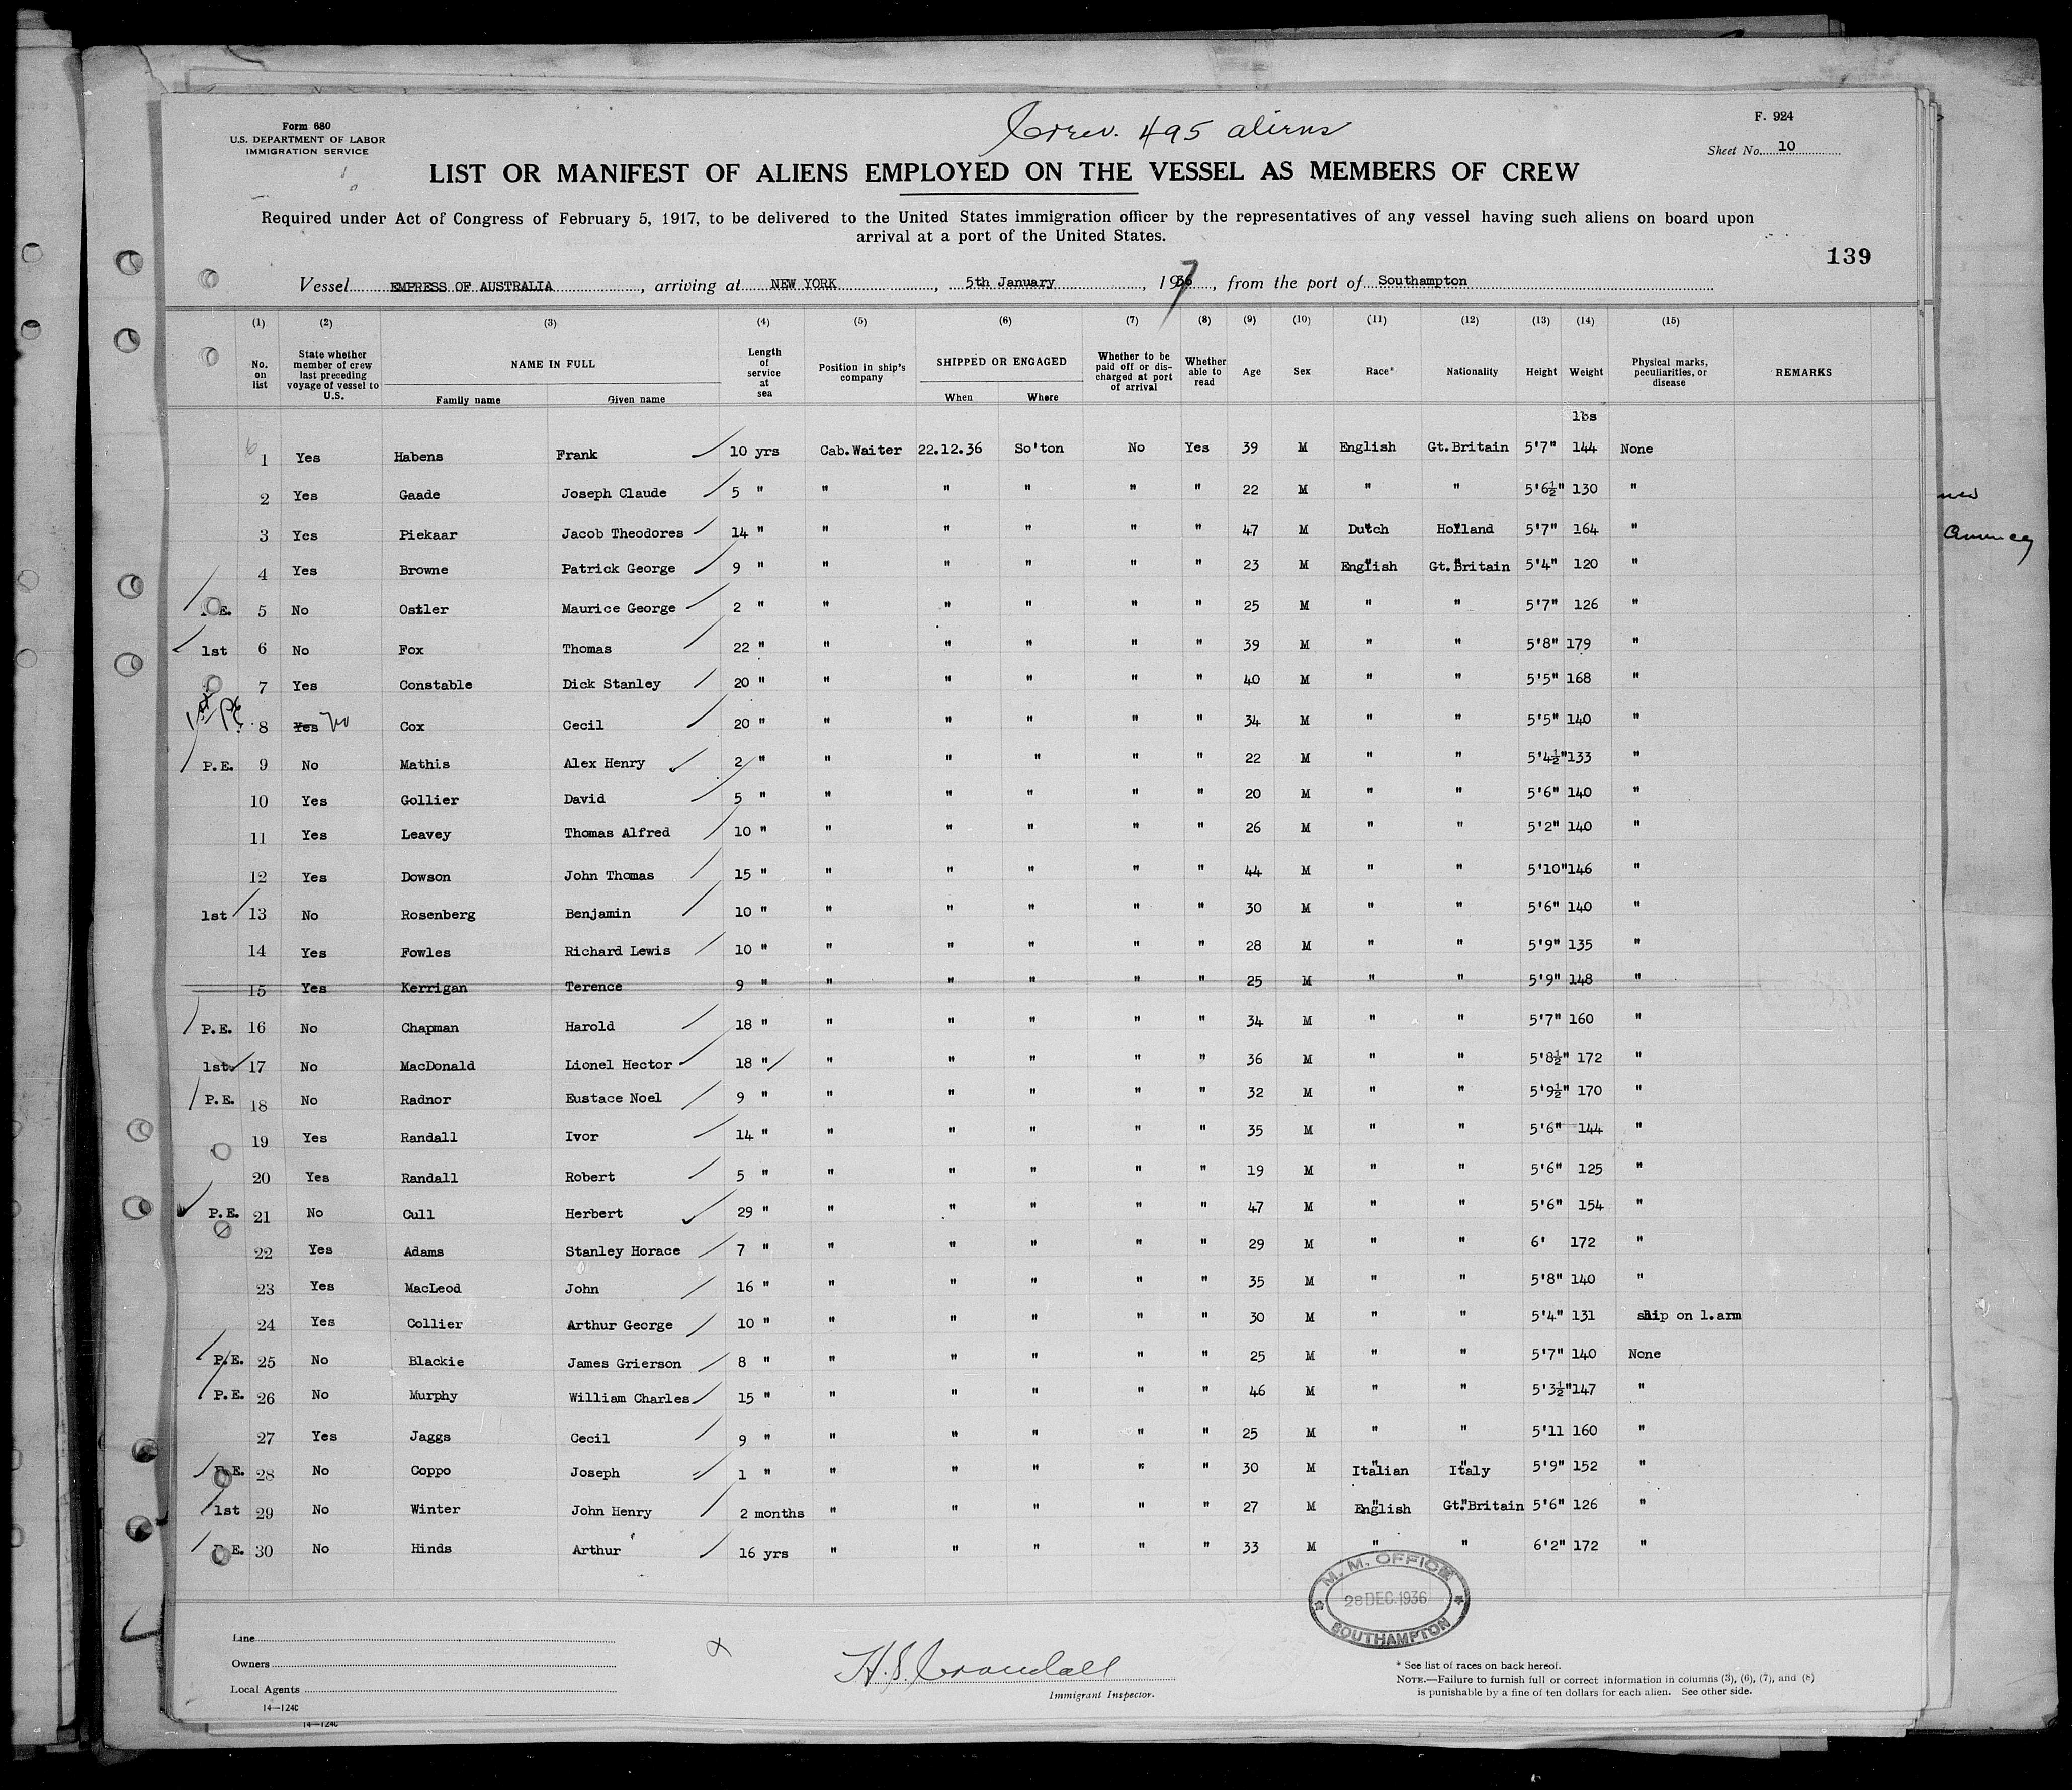 Form 680
U.S. DEPARTMENT OF LABOR
IMMIGRATION SERVICE
Crew. 495 aliens
F. 924
Sheet No. 10
LIST OR MANIFEST OF ALIENS EMPLOYED ON THE VESSEL AS MEMBERS OF CREW
Required under Act of Congress of February 5, 1917, to be delivered to the United States immigration officer by the representatives of any vessel having such aliens on board upon
arrival at a port of the United States.
139
Vessel EMPRESS OF AUSTRALIA, arriving at NEW YORK, 5th January, 1937, from the port of Southampton
(1) (2) (3) (4) (5) (6) (7) (8) (9) (10) (11) (12) (13) (14) (15)
No. on list State whether member of crew last preceding voyage of vessel to U.S. NAME IN FULL Family name Given name Length of service at sea Position in ship's company SHIPPED OR ENGAGED When Where Whether to be paid off or discharged at port of arrival Whether able to read Age Sex Race* Nationality Height Weight Physical marks, peculiarities, or disease REMARKS
lbs
1 Yes Habens Frank 10 yrs Cab.Waiter 22.12.36 So'ton No Yes 39 M English Gt.Britain 5'7" 144 None
2 Yes Gaade Joseph Claude 5 " " " " " " 22 M " " 5'6½" 130 "
3 Yes Piekaar Jacob Theodores 14 " " " " " " 47 M Dutch Holland 5'7" 164 "
4 Yes Browne Patrick George 9 " " " " " " 23 M English Gt.Britain 5'4" 120 "
P.E. 5 No Ostler Maurice George 2 " " " " " " 25 M " " 5'7" 126 "
1st 6 No Fox Thomas 22 " " " " " " 39 M " " 5'8" 179 "
7 Yes Constable Dick Stanley 20 " " " " " " 40 M " " 5'5" 168 "
1st P.E. 8 Yes No Cox Cecil 20 " " " " " " 34 M " " 5'5" 140 "
P.E. 9 No Mathis Alex Henry 2 " " " " " " 22 M " " 5'4½" 133 "
10 Yes Gollier David 5 " " " " " " 20 M " " 5'6" 140 "
11 Yes Leavey Thomas Alfred 10 " " " " " " 26 M " " 5'2" 140 "
12 Yes Dowson John Thomas 15 " " " " " " 44 M " " 5'10" 146 "
1st 13 No Rosenberg Benjamin 10 " " " " " " 30 M " " 5'6" 140 "
14 Yes Fowles Richard Lewis 10 " " " " " " 28 M " " 5'9" 135 "
15 Yes Kerrigan Terence 9 " " " " " " 25 M " " 5'9" 148 "
P.E. 16 No Chapman Harold 18 " " " " " " 34 M " " 5'7" 160 "
1st 17 No MacDonald Lionel Hector 18 " " " " " " 36 M " " 5'8½" 172 "
P.E. 18 No Radnor Eustace Noel 9 " " " " " " 32 M " " 5'9½" 170 "
19 Yes Randall Ivor 14 " " " " " " 35 M " " 5'6" 144 "
20 Yes Randall Robert 5 " " " " " " 19 M " " 5'6" 125 "
P.E. 21 No Cull Herbert 29 " " " " " " 47 M " " 5'6" 154 "
22 Yes Adams Stanley Horace 7 " " " " " " 29 M " " 6' 172 "
23 Yes MacLeod John 16 " " " " " " 35 M " " 5'8" 140 "
24 Yes Collier Arthur George 10 " " " " " " 30 M " " 5'4" 131 ship on l.arm
P.E. 25 No Blackie James Grierson 8 " " " " " " 25 M " " 5'7" 140 None
P.E. 26 No Murphy William Charles 15 " " " " " " 46 M " " 5'3½" 147 "
27 Yes Jaggs Cecil 9 " " " " " " 25 M " " 5'11 160 "
P.E. 28 No Coppo Joseph 1 " " " " " " 30 M Italian Italy 5'9" 152 "
1st 29 No Winter John Henry 2 months " " " " " 27 M English Gt.Britain 5'6" 126 "
P.E. 30 No Hinds Arthur 16 yrs " " " " " 33 M " " 6'2" 172 "
M. M. OFFICE
28 DEC. 1936
SOUTHAMPTON
Line
Owners
Local Agents
14—1240
H.S. Crandall
Immigrant Inspector.
* See list of races on back hereof.
NOTE.—Failure to furnish full or correct information in columns (3), (6), (7), and (8)
is punishable by a fine of ten dollars for each alien. See other side.
14—1240